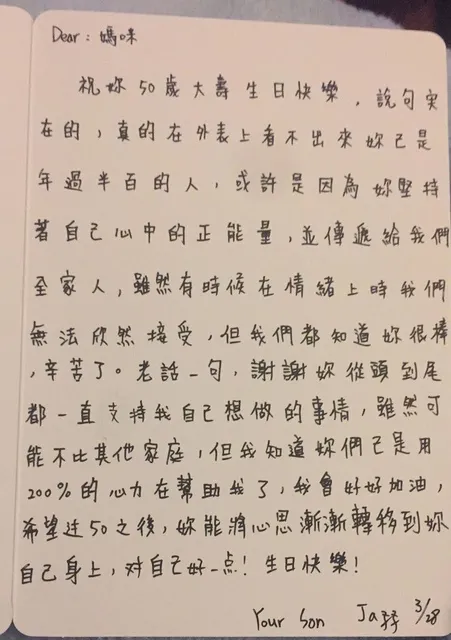 Dear : 媽咪
祝妳50歲大壽生日快樂，說句實
在的，真的在外表上看不出來妳已是
年過半百的人，或許是因為妳堅持
著自己心中的正能量，並傳遞給我們
全家人，雖然有時候在情緒上時我們
無法欣然接受，但我們都知道妳很棒
，辛苦了。老話一句，謝謝妳從頭到尾
都一直支持我自己想做的事情，雖然可
能不比其他家庭，但我知道妳們已是用
200%的心力在幫助我了，我會好好加油，
希望过50之後，妳能將心思漸漸轉移到妳
自己身上，对自己好一点！生日快樂！
Your Son Ja 3/28